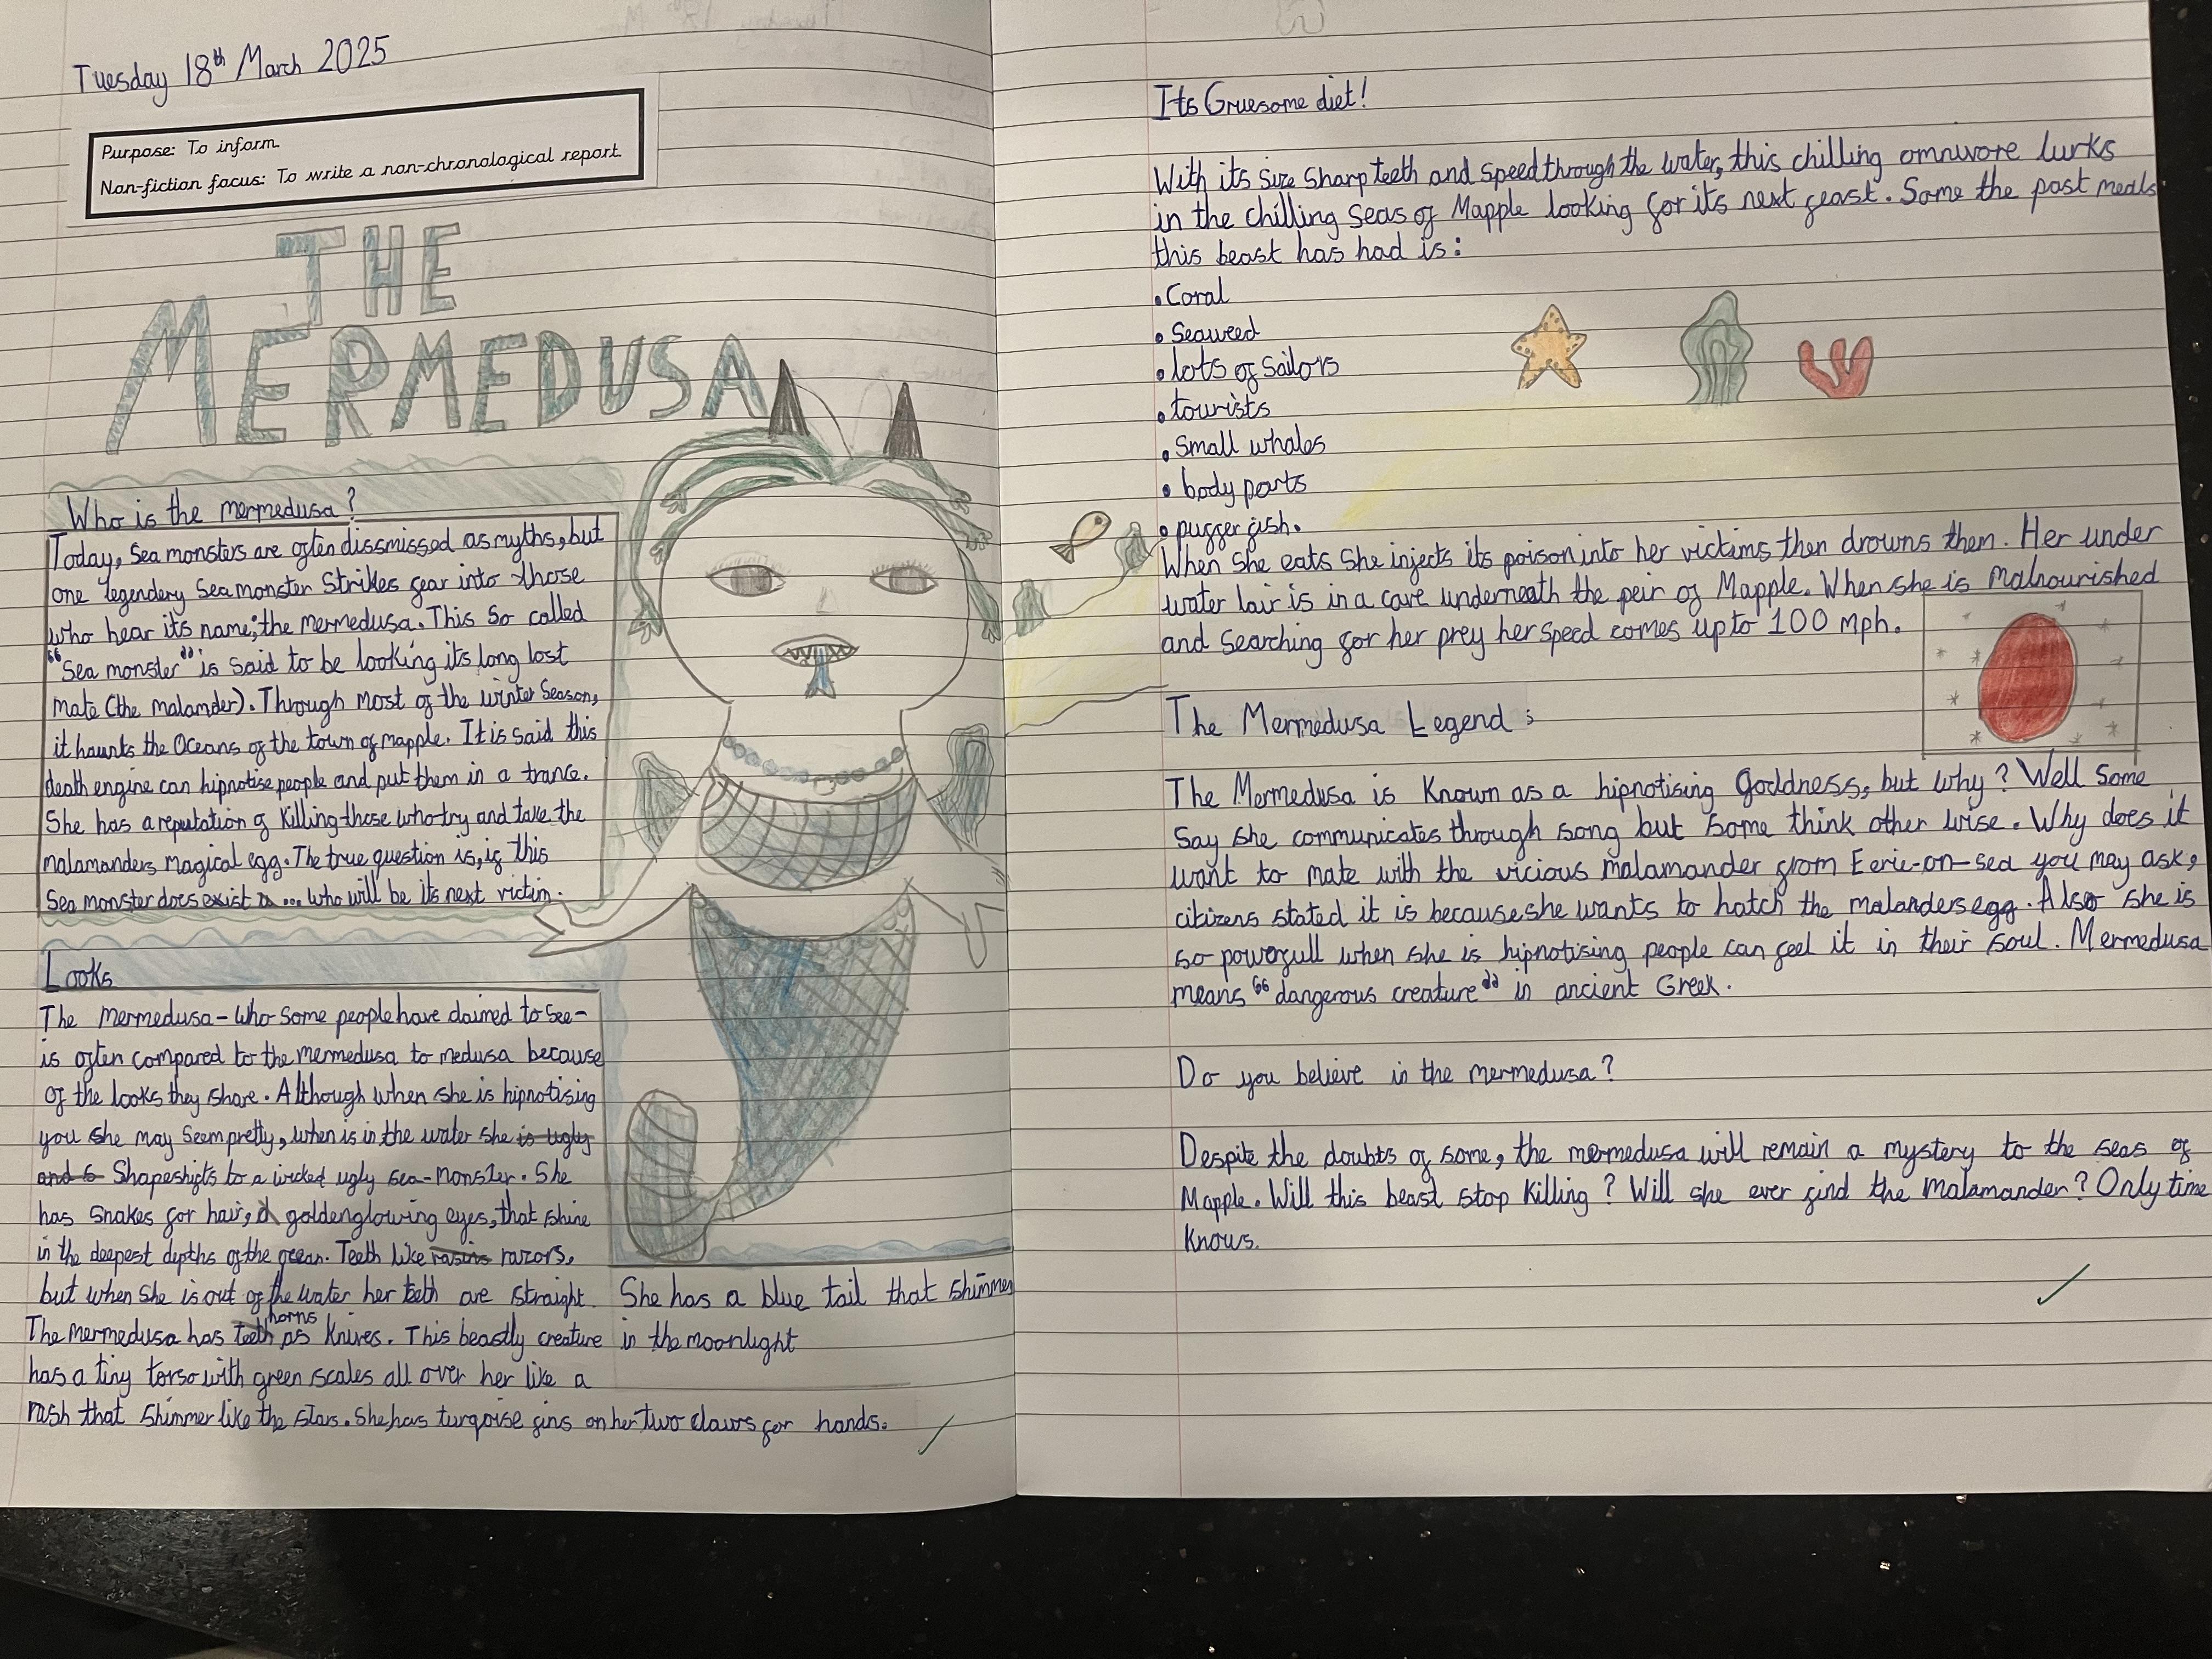 Tuesday 18th March 2025
Purpose: To inform.
Non-fiction focus: To write a non-chronological report.
THE
MERMEDUSA
Who is the mermedusa?
Today, Sea monsters are often dissmissed as myths, but
one legendery Sea monster Strikes fear into those
who hear its name; the mermedusa. This So called
"Sea monster" is said to be looking its long lost
mate (the malander). Through most of the winter Season,
it haunts the Oceans of the town of mapple. It is said this
death engine can hipnotise people and put them in a trance.
She has a reputation of Killing those who try and take the
malamanders magical egg. The true question is, if this
Sea monster does exist ... who will be its next victim.
Looks
The mermedusa - who some people have claimed to see -
is often compared to the mermedusa to medusa because
of the looks they share. Although when she is hipnotising
you she may seem pretty, when is in the water she is ugly
and s Shapeshifts to a wicked ugly sea-monster. She
has snakes for hair, golden glowing eyes, that shine
in the deepest depths of the ocean. Teeth like rasins razors,
but when she is out of the water her teeth are straight.
The mermedusa has teeth horns as Knives. This beastly creature
has a tiny torso with green scales all over her like a
rash that shimmer like the stars. She has turqoise fins on her two claws for hands.
She has a blue tail that shimmer
in the moonlight
Its Gruesome diet!
With its size sharp teeth and speed through the water, this chilling omnivore lurks
in the chilling seas of Mapple looking for its next feast. Some the past meals
this beast has had is:
• Coral
• Seaweed
• lots of sailors
• tourists
• Small whales
• body parts
• puffer fish.
When She eats She injects its poison into her victims then drowns them. Her under
water lair is in a cave underneath the peir of Mapple. When she is malnourished
and searching for her prey her speed comes up to 100 mph.
The Mermedusa Legend :
The Mermedusa is Known as a hipnotising goddness, but why? Well Some
say she communicates through song but some think other wise. Why does it
want to mate with the vicious malamander from Eerie-on-sea you may ask,
citizens stated it is because she wants to hatch the malanders egg. Also she is
so powerfull when she is hipnotising people can feel it in their soul. Mermedusa
means "dangerous creature" in ancient Greek.
Do you believe in the mermedusa?
Despite the doubts of some, the mermedusa will remain a mystery to the seas of
Mapple. Will this beast stop Killing? Will she ever find the malamander? Only time
Knows.